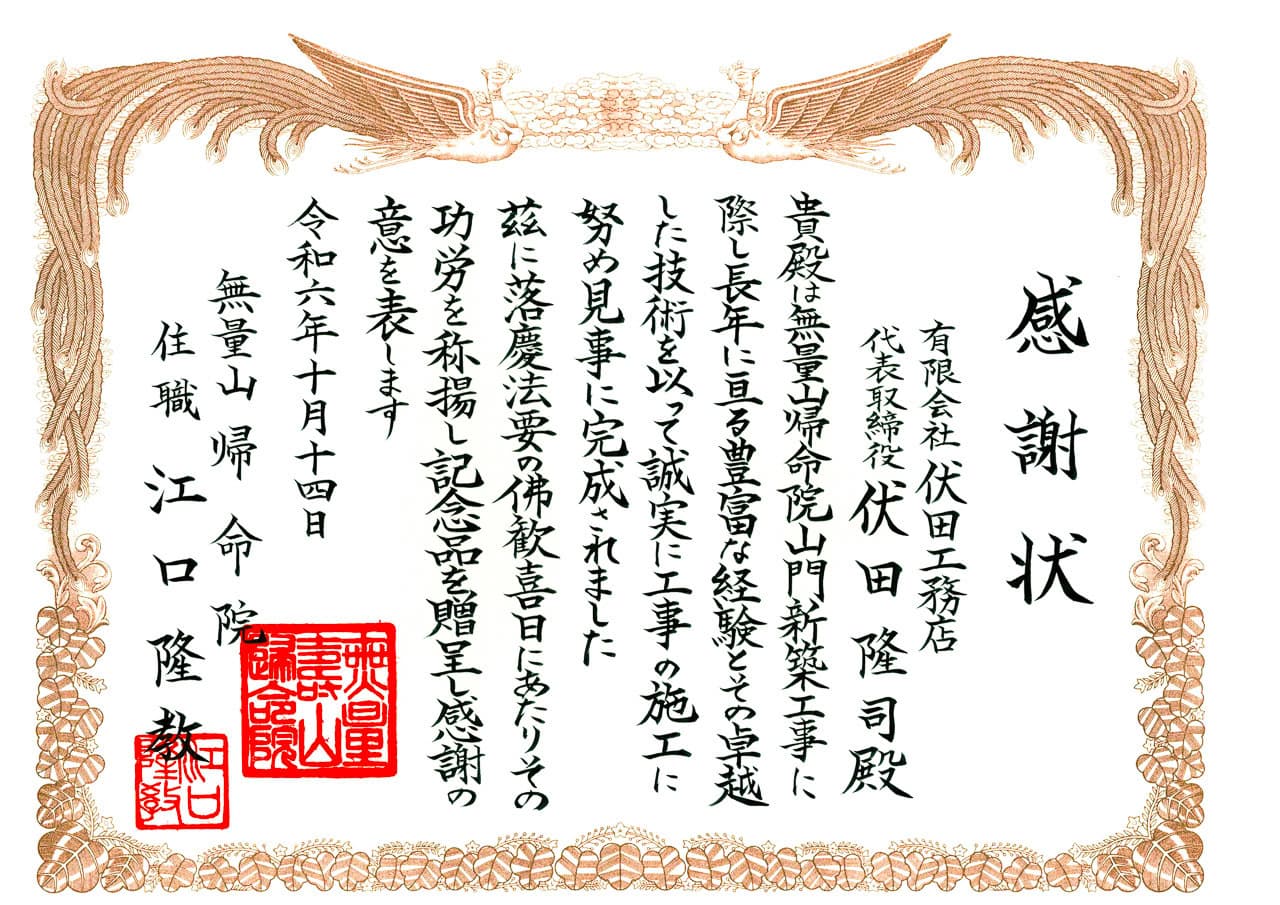 感謝状
有限会社 伏田工務店
代表取締役 伏田隆司殿
貴殿は無量山帰命院山門新築工事に
際し長年に亘る豊富な経験とその卓越
した技術を以って誠実に工事の施工に
努め見事に完成されました
茲に落慶法要の佛歓喜日にあたりその
功労を称揚し記念品を贈呈し感謝の
意を表します
令和六年十月十四日
無量山帰命院
住職 江口隆教
無量
壽山
歸命院
江口
隆教